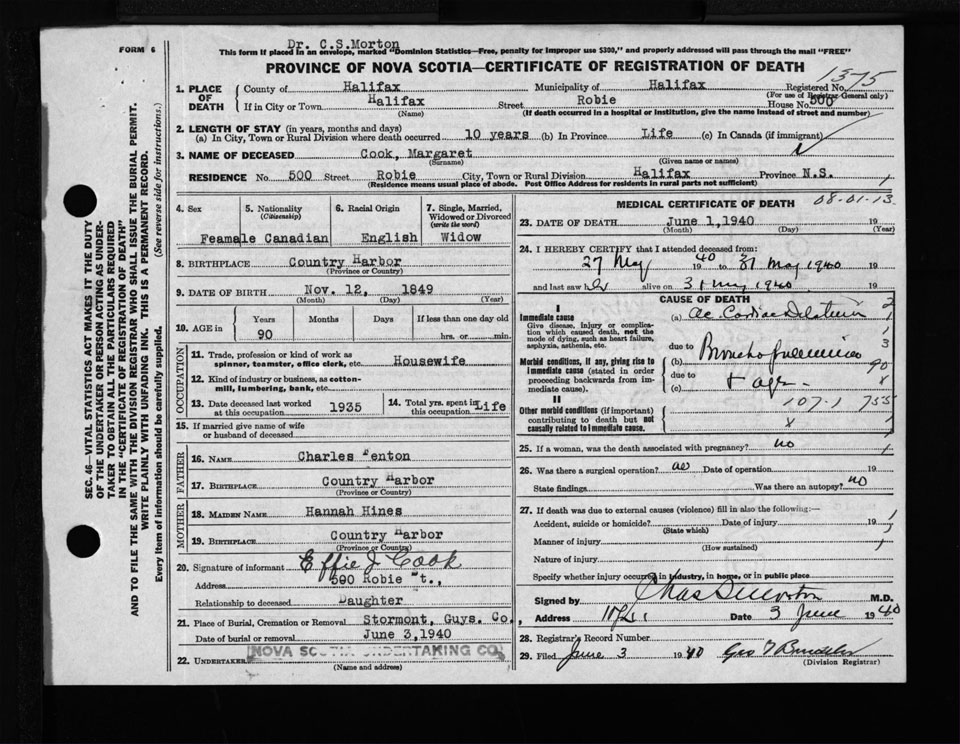 FORM 6
Dr. C.S.Morton
This form if placed in an envelope, marked "Dominion Statistics—Free, penalty for improper use $300," and properly addressed will pass through the mail "FREE"
PROVINCE OF NOVA SCOTIA—CERTIFICATE OF REGISTRATION OF DEATH
1375
1. PLACE OF DEATH
County of Halifax Municipality of Halifax Registered No.
(For use of Registrar General only)
If in City or Town Halifax Street Robie House No. 500
(Name) (If death occurred in a hospital or institution, give the name instead of street and number)
2. LENGTH OF STAY (in years, months and days)
(a) In City, Town or Rural Division where death occurred 10 years (b) In Province Life (c) In Canada (if immigrant)
3. NAME OF DECEASED Cook, Margaret
(Surname) (Given name or names)
RESIDENCE No. 500 Street Robie City, Town or Rural Division Halifax Province N.S.
(Residence means usual place of abode. Post Office Address for residents in rural parts not sufficient)
4. Sex 5. Nationality (Citizenship) 6. Racial Origin 7. Single, Married, Widowed or Divorced (write the word)
Feamale Canadian English Widow
8. BIRTHPLACE Country Harbor
(Province or Country)
9. DATE OF BIRTH Nov. 12, 1849
(Month) (Day) (Year)
10. AGE in Years Months Days If less than one day old
90 hrs. or min.
OCCUPATION
11. Trade, profession or kind of work as spinner, teamster, office clerk, etc. Housewife
12. Kind of industry or business, as cotton-mill, lumbering, bank, etc.
13. Date deceased last worked at this occupation 1935 14. Total yrs. spent in this occupation Life
15. If married give name of wife or husband of deceased
FATHER
16. NAME Charles Fenton
17. BIRTHPLACE Country Harbor
(Province or Country)
MOTHER
18. MAIDEN NAME Hannah Hines
19. BIRTHPLACE Country Harbor
(Province or Country)
20. Signature of informant Effie J Cook
Address 500 Robie St.,
Relationship to deceased Daughter
21. Place of Burial, Cremation or Removal Stormont, Guys. Co.,
Date of burial or removal June 3,1940
22. UNDERTAKER NOVA SCOTIA UNDERTAKING CO.
(Name and address)
MEDICAL CERTIFICATE OF DEATH 08-01-13
23. DATE OF DEATH June 1,1940 19
(Month) (Day) (Year)
24. I HEREBY CERTIFY that I attended deceased from:
27 May 1940 to 31 May 1940 19
and last saw her alive on 31 May 1940 19
CAUSE OF DEATH
I
Immediate cause (a) Ac. Cardiac Dilatation
Give disease, injury or complication which caused death, not the mode of dying, such as heart failure, asphyxia, asthenia, etc.
due to
Morbid conditions, if any, giving rise to immediate cause (stated in order proceeding backwards from immediate cause).
(b) Broncho pneumonia
due to
(c) + age
II
Other morbid conditions (if important) contributing to death but not causally related to immediate cause.
107-1 755
25. If a woman, was the death associated with pregnancy? no
26. Was there a surgical operation? no Date of operation 19
State findings Was there an autopsy? no
27. If death was due to external causes (violence) fill in also the following:—
Accident, suicide or homicide? Date of injury 19
(State which)
Manner of injury
(How sustained)
Nature of injury
Specify whether injury occurred in industry, in home, or in public place
Signed by Chas S Morton M.D.
Address Date 3 June 1940
28. Registrar's Record Number
29. Filed June 3 1940 Geo
(Division Registrar)
SEC. 46—VITAL STATISTICS ACT MAKES IT THE DUTY
OF THE UNDERTAKER OR PERSON ACTING AS UNDER-
TAKER TO OBTAIN ALL THE PARTICULARS REQUIRED
IN THE "CERTIFICATE OF REGISTRATION OF DEATH"
AND TO FILE THE SAME WITH THE DIVISION REGISTRAR WHO SHALL ISSUE THE BURIAL PERMIT.
WRITE PLAINLY WITH UNFADING INK. THIS IS A PERMANENT RECORD.
Every item of information should be carefully supplied. (See reverse side for instructions.)